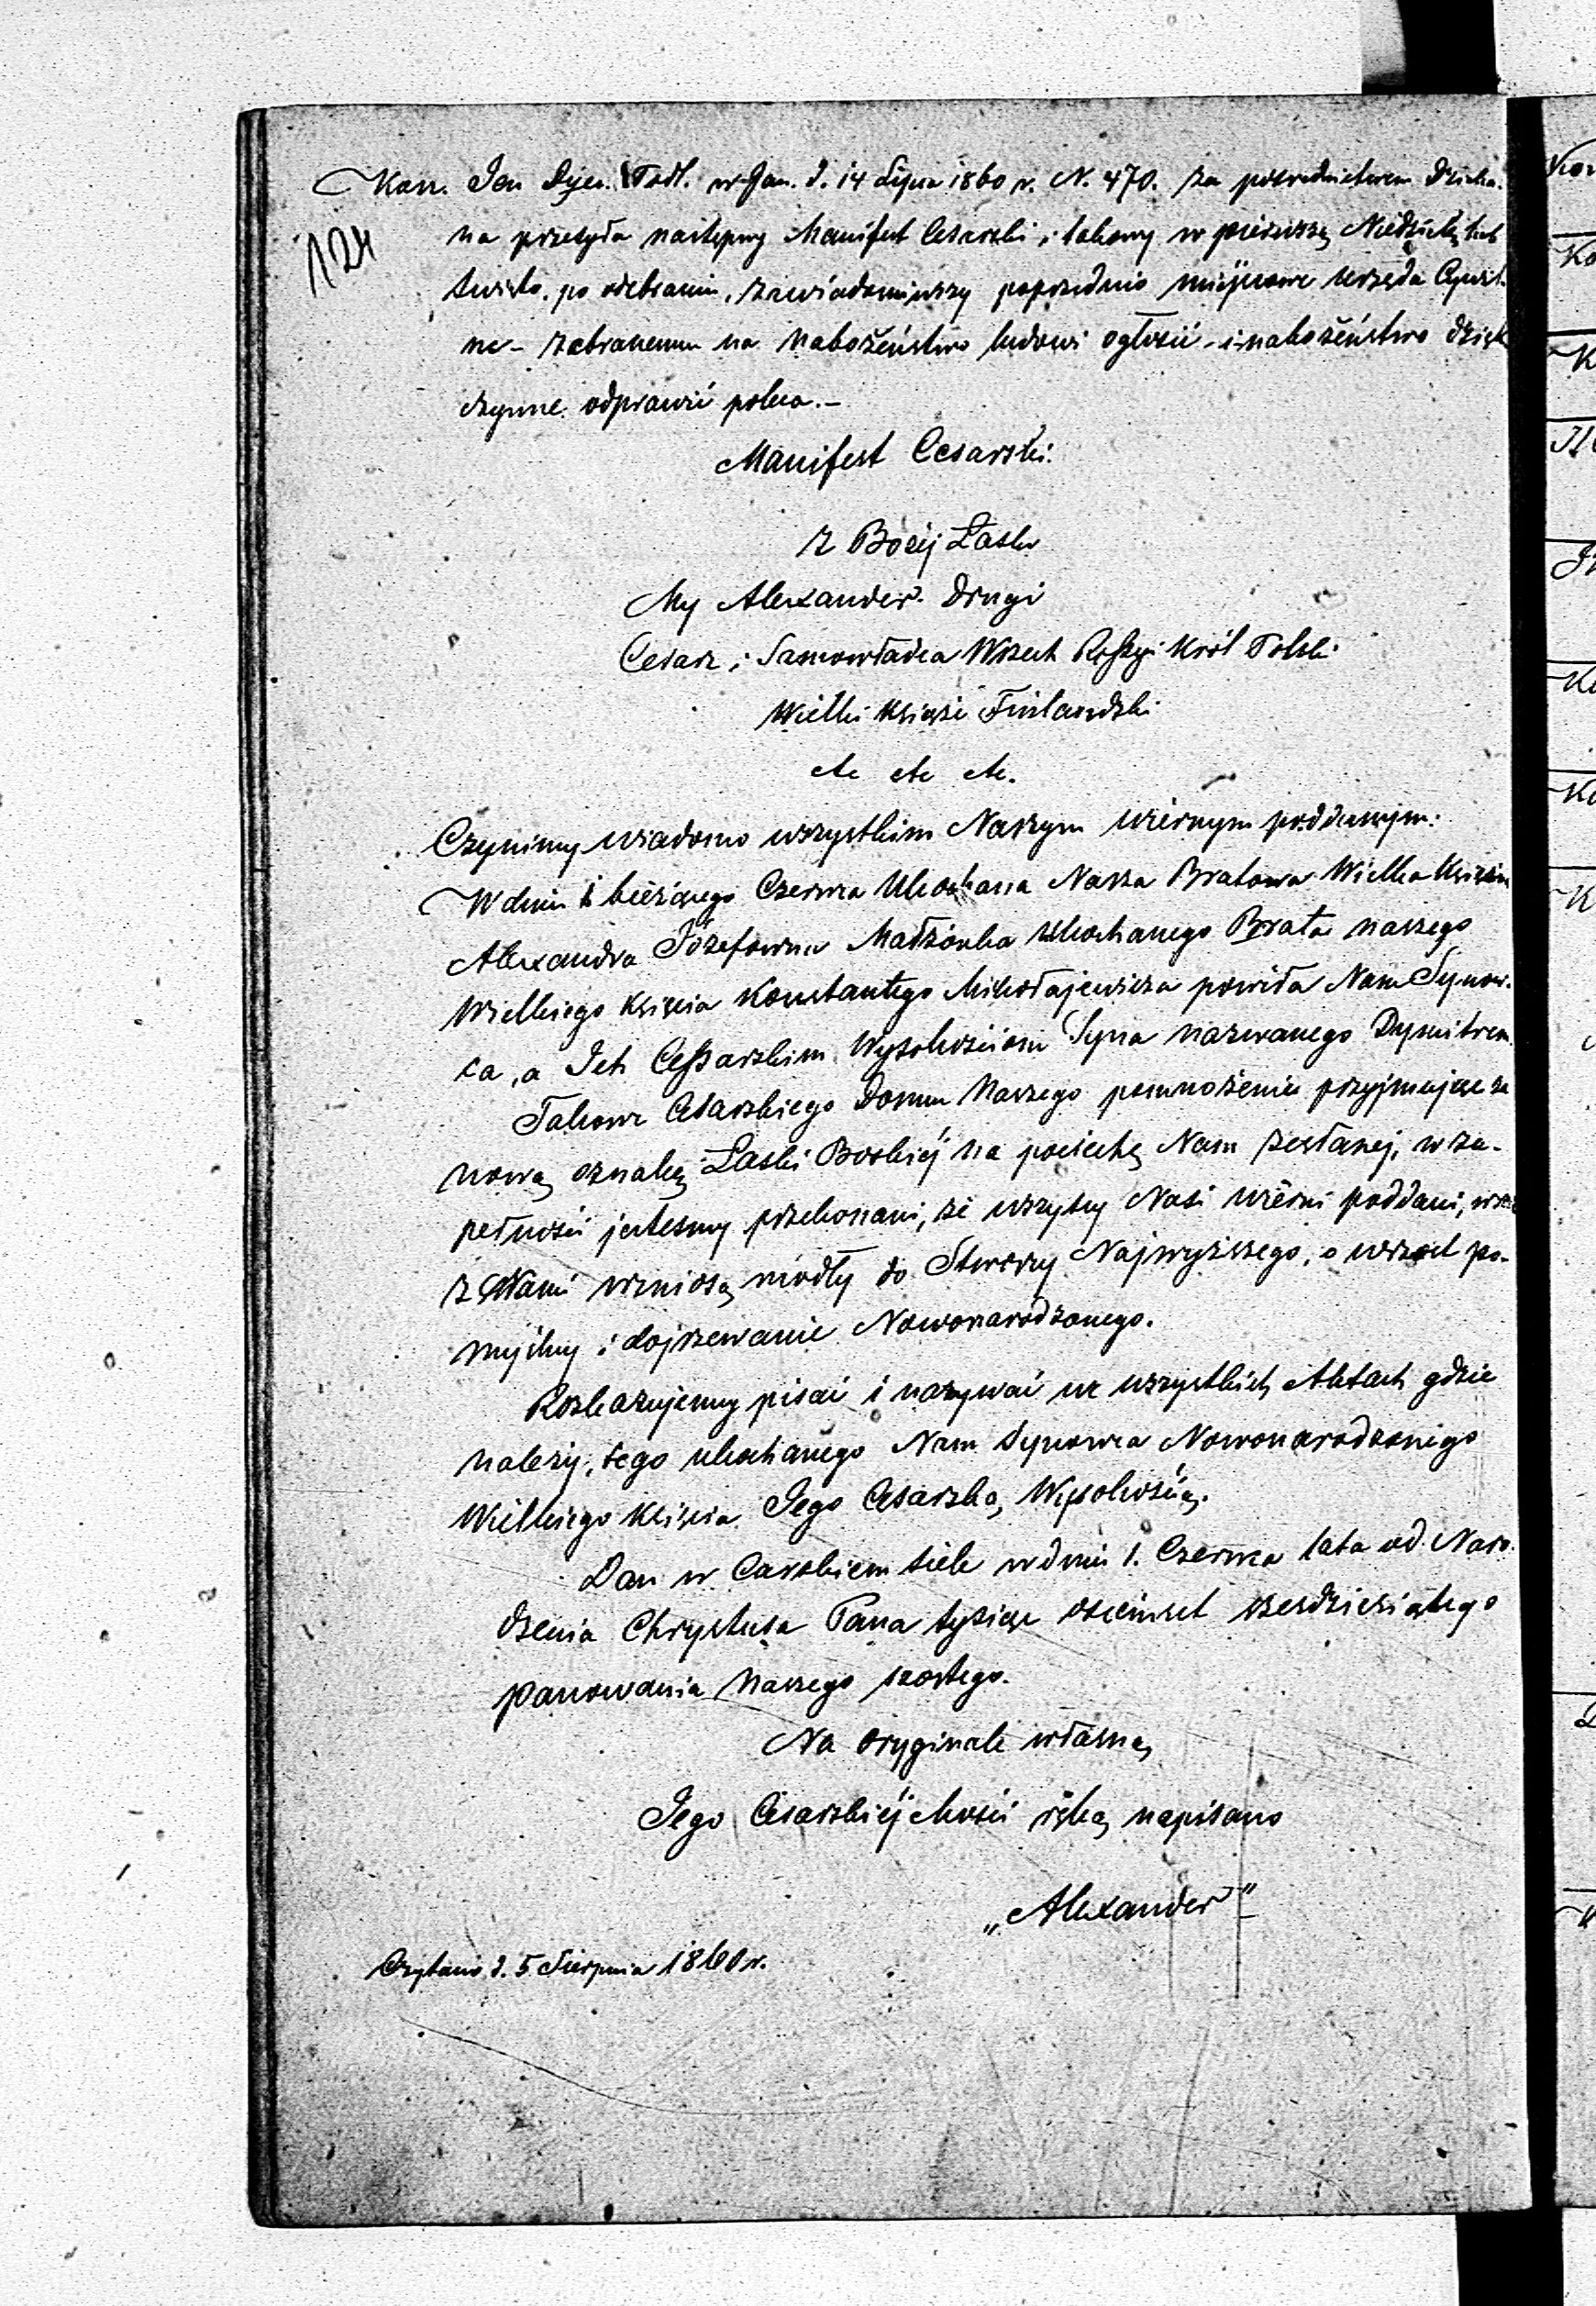 Kons. Jen Dyec. Podl. w Jan. d. 14 Lipca 1860 r. N. 470. za posrednictwem Dzieka-
124
na przesyła następny Manifest Cesarski, i takowy w pierwszą Niedzielę lub
święto, po odebraniu, zawiadomiwszy poprzednio miejscowe Urzęda Cywil-
ne - zebranemu na nabożeństwo ludowi ogłosić - i nabożeństwo dzięk
czynne odprawić poleca. -
Manifest Cesarski.
Z Bożej Łaski
My Alexander Drugi
Cesarz i Samowładca Wszech Rossyi Król Polski
Wielki Książe Finlandzki
etc etc etc.
Czynimy wiadomo wszystkim Naszym wiernym poddanym:
W dniu 1 bieżącego Czerwca Ukochana Nasza Bratowa Wielka Księżna
Alexandra Józefowna Małżonka Ukochanego Brata naszego
Wielkiego Księcia Konstantego Mikołajewicza powiła Nam Synow-
ca, a Ich Cessarskim Wysokościom Syna nazwanego Dymitrem
Takowe Cesarskiego Domu Naszego pomnożenie przyjmując za
nową oznakę Łaski Boskiej na pociechę Nam zesłanej, w zu-
pełności jesteśmy przekonani, że wszyscy Nasi wierni poddani,
z Nami wzniosą modły do Stwórcy Najwyższego, o wzrost po-
myślny i dojrzewanie Nowonarodzonego.
Rozkazujemy pisać i nazywać we wszystkich Aktach gdzie
należy, tego ukochanego Nam Synowca Nowonarodzonego
Wielkiego Księcia Jego Cesarską Wysokością.
Dan w Carskiem Siele w dniu 1. Czerwca lata od Naro-
dzenia Chrystusa Pana tysiąc osiemset sześdziesiątego
Panowania Naszego szóstego.
Na oryginale własną
Jego Cesarskiej Mości ręką napisano
„Alexander"
Czytano d. 5 Sierpnia 1860 r.